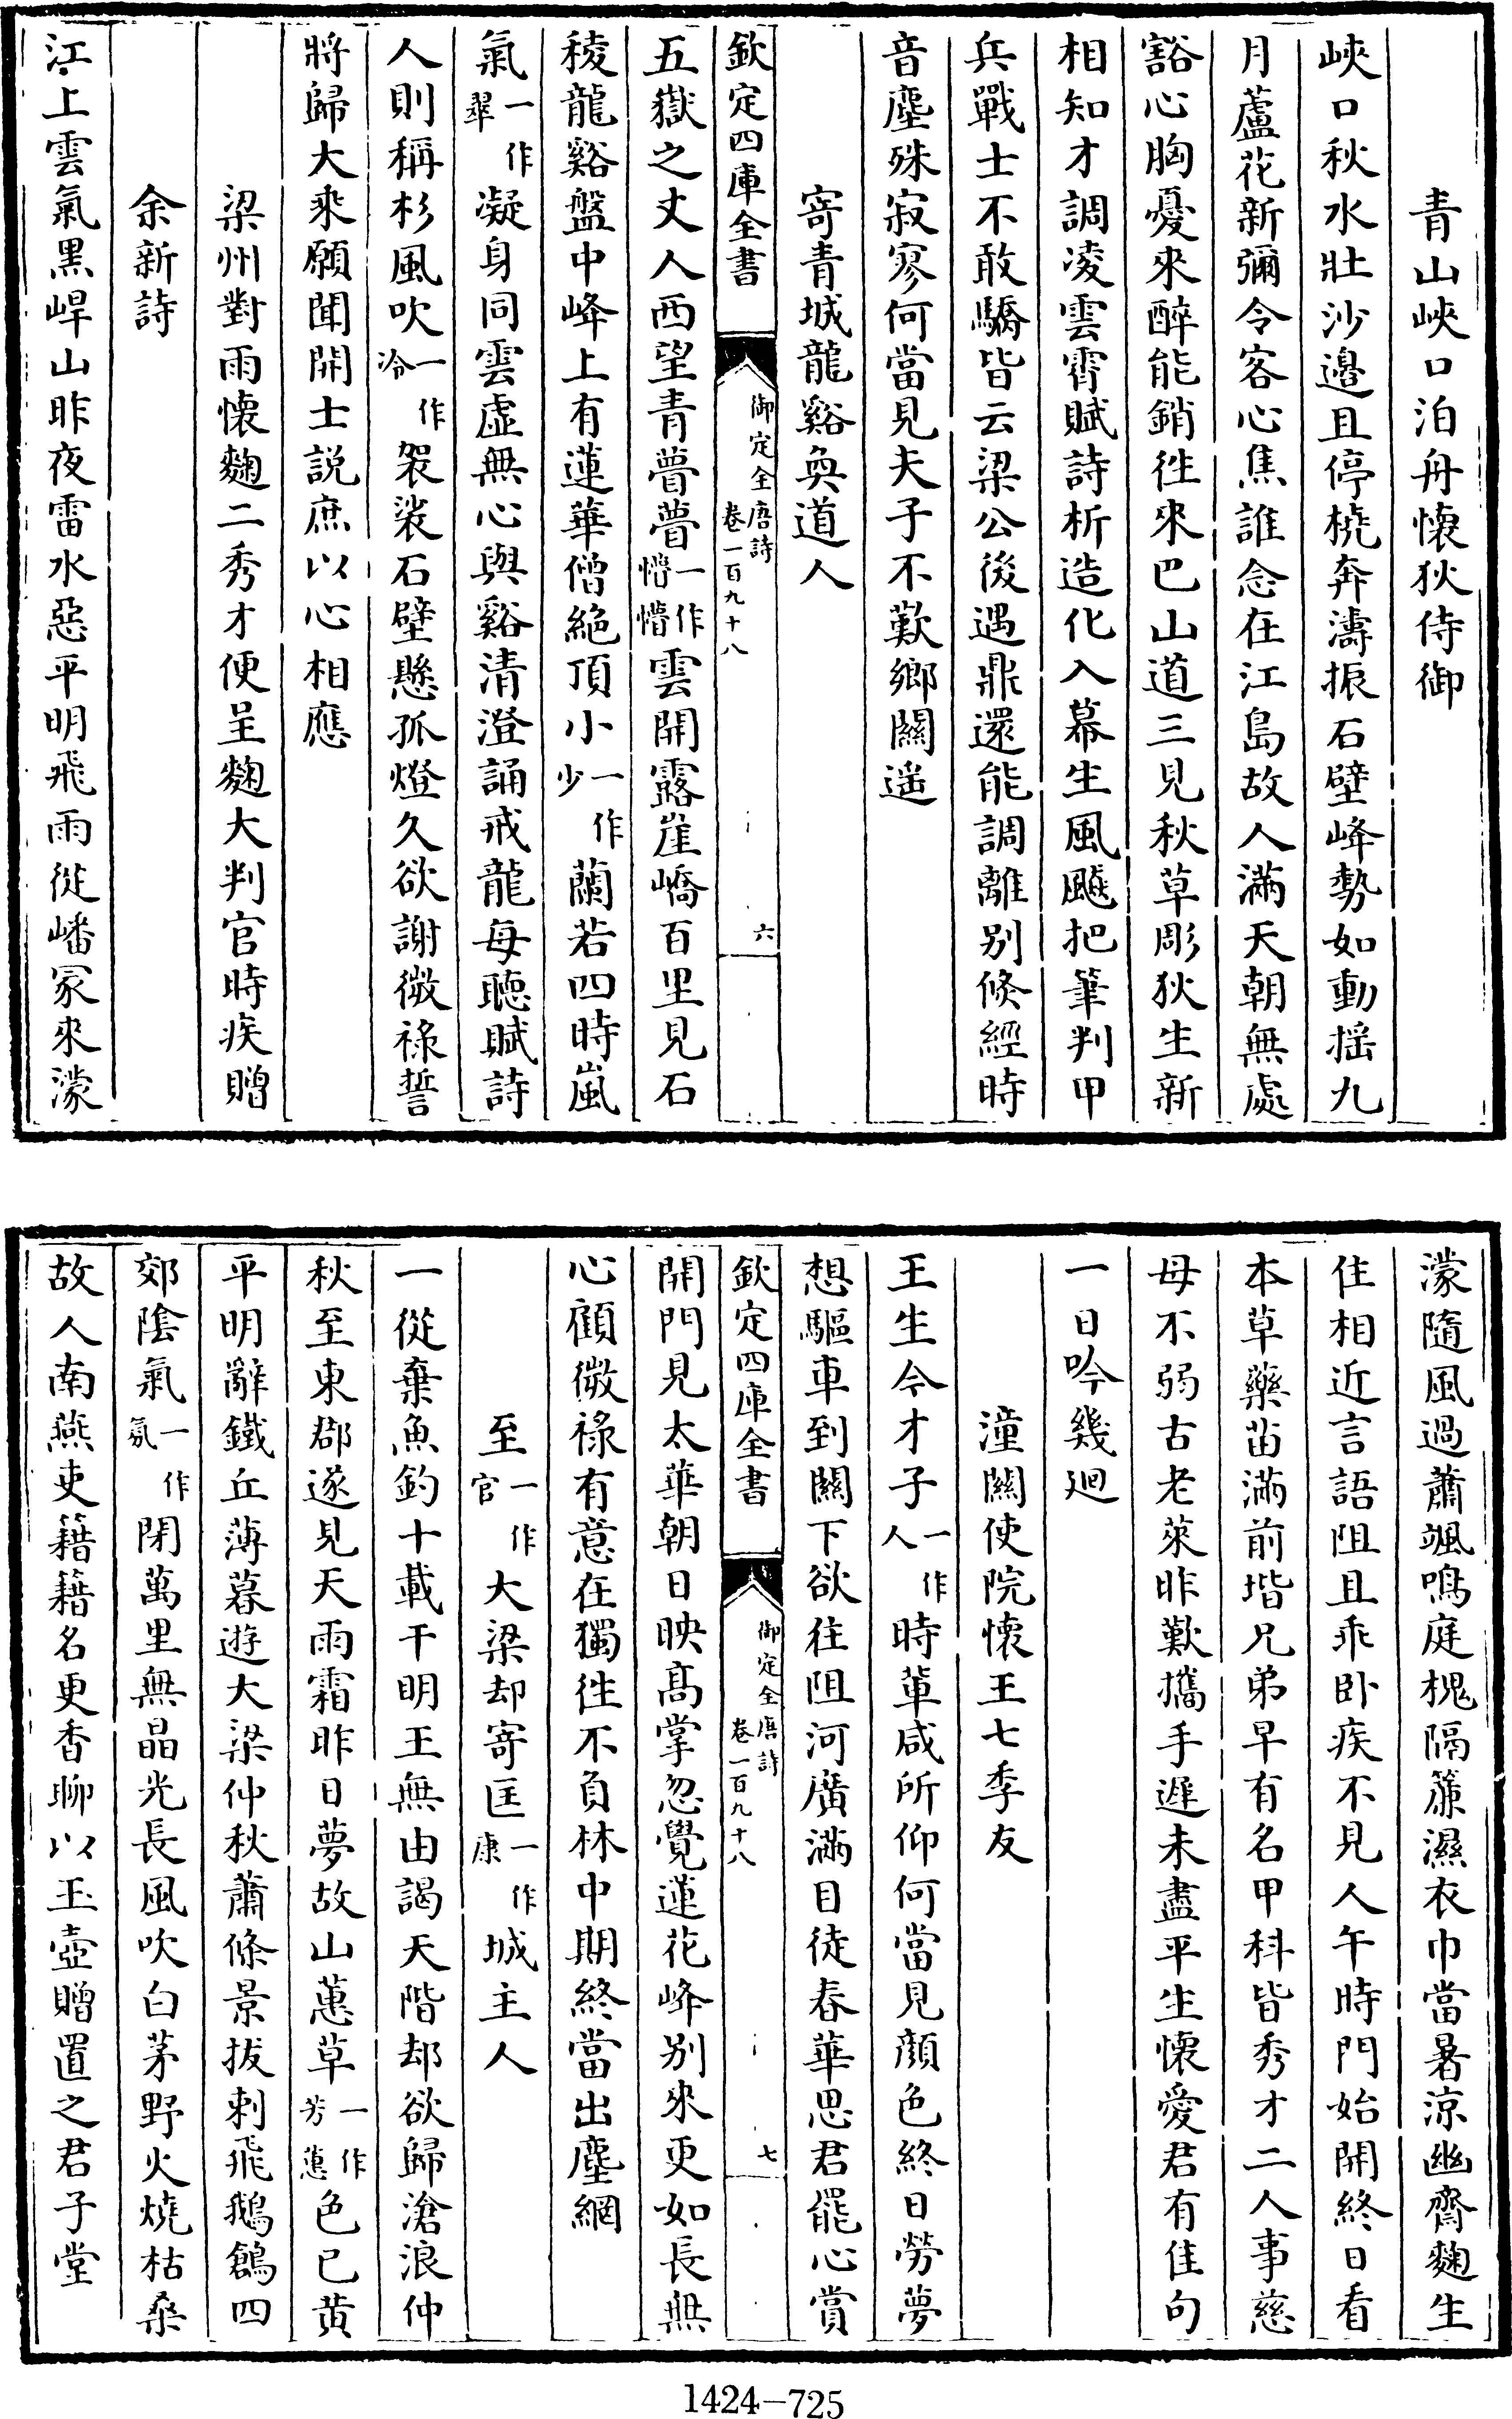 青山峽口泊舟懷狄侍御
峽口秋水壯沙邊且停橈奔濤振石壁峰勢如動搖九
月蘆花新彌令客心焦誰念在江島故人滿天朝無處
豁心胸憂來醉能銷徃來巴山道三見秋草彫狄生新
相知才調凌雲霄賦詩析造化入幕生風飈把筆判甲
兵戰士不敢驕皆云梁公後遇鼎還能調離別倐經時
音塵殊寂寥何當見夫子不歎鄉關遥
寄青城龍谿奐道人
欽定四庫全書 御定全唐詩 卷一百九十八 六
五嶽之丈人西望青瞢瞢一作懵懵雲開露崖嶠百里見石
稜龍谿盤中峰上有蓮華僧絶頂小一作少蘭若四時嵐
氣一作翠凝身同雲虛無心與谿清澄誦戒龍每聽賦詩
人則稱杉風吹一作冷袈裟石壁懸孤燈久欲謝微祿誓
將歸大乘願聞開士説庶以心相應
梁州對雨懷麴二秀才便呈麴大判官時疾贈
余新詩
江上雲氣黒峄山昨夜雷水惡平明飛雨從嶓冢來濛
濛隨風過蕭颯鳴庭槐隔簾濕衣巾當暑涼幽齋麴生
住相近言語阻且乖卧疾不見人午時門始開終日看
本草藥苗滿前堦兄弟早有名甲科皆秀才二人事慈
母不弱古老萊昨歎攜手遲未盡平生懷愛君有佳句
一日吟幾迴
潼關使院懷王七季友
王生今才子一作人時輩咸所仰何當見顔色終日勞夢
想驅車到關下欲往阻河廣滿目徒春華思君罷心賞
欽定四庫全書 御定全唐詩 卷一百九十八 七
開門見太華朝日映髙掌忽覺蓮花峰別來更如長無
心顧微祿有意在獨徃不負林中期終當出塵網
至一作官大梁却寄匡一作康城主人
一從棄魚釣十載干明王無由謁天階却欲歸滄浪仲
秋至東郡遂見天雨霜昨日夢故山蕙草一作芳蕙色已黄
平明辭鐵丘薄暮遊大梁仲秋蕭條景拔剌飛鵝鶬四
郊陰氣一作氛閉萬里無晶光長風吹白茅野火燒枯桑
故人南燕吏籍籍名更香聊以玉壺贈置之君子堂
1424-725